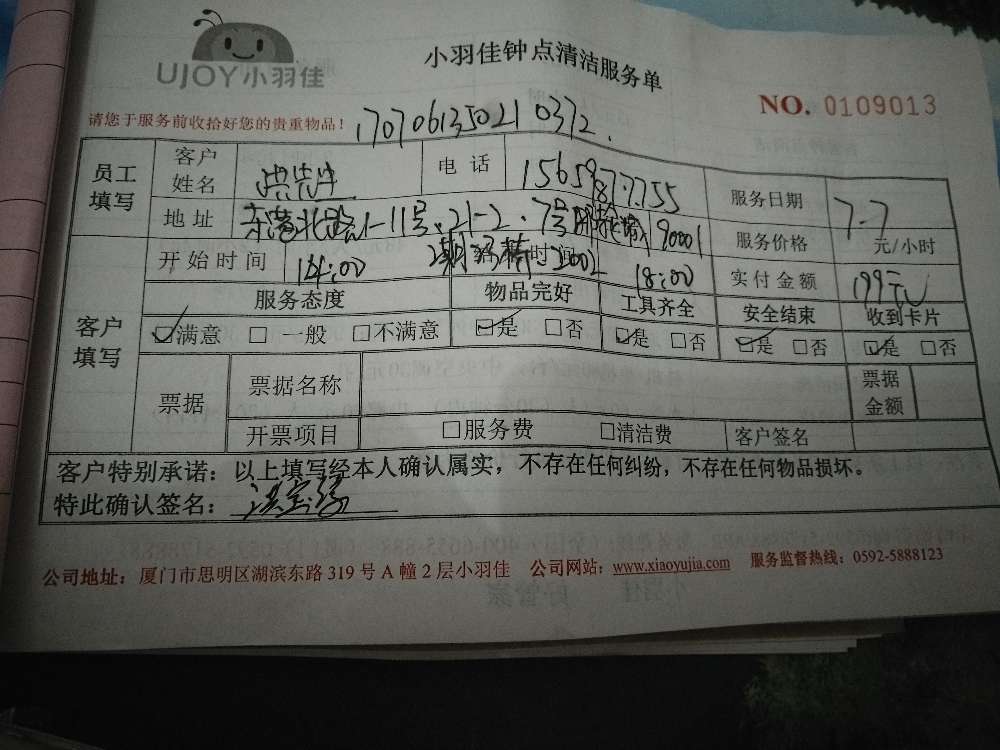 UJOY小羽佳
小羽佳钟点清洁服务单
NO. 0109013
请您于服务前收拾好您的贵重物品！
170706135021 0372.
员工填写
客户姓名 洪先生
电话
服务日期 7-7
地址 东港北路1-11号、21-2、7号
服务价格 元/小时
开始时间 14:00
时间 18:00
实付金额 199元
客户填写
服务态度 物品完好 工具齐全 安全结束 收到卡片
☑满意 □一般 □不满意 ☑是 □否 ☑是 □否 ☑是 □否 ☑是 □否
票据 票据名称 票据金额
开票项目 □服务费 □清洁费 客户签名
客户特别承诺：以上填写经本人确认属实，不存在任何纠纷，不存在任何物品损坏。
特此确认签名：
公司地址：厦门市思明区湖滨东路 319 号 A 幢 2 层小羽佳 公司网站：www.xiaoyujia.com 服务监督热线：0592-5888123